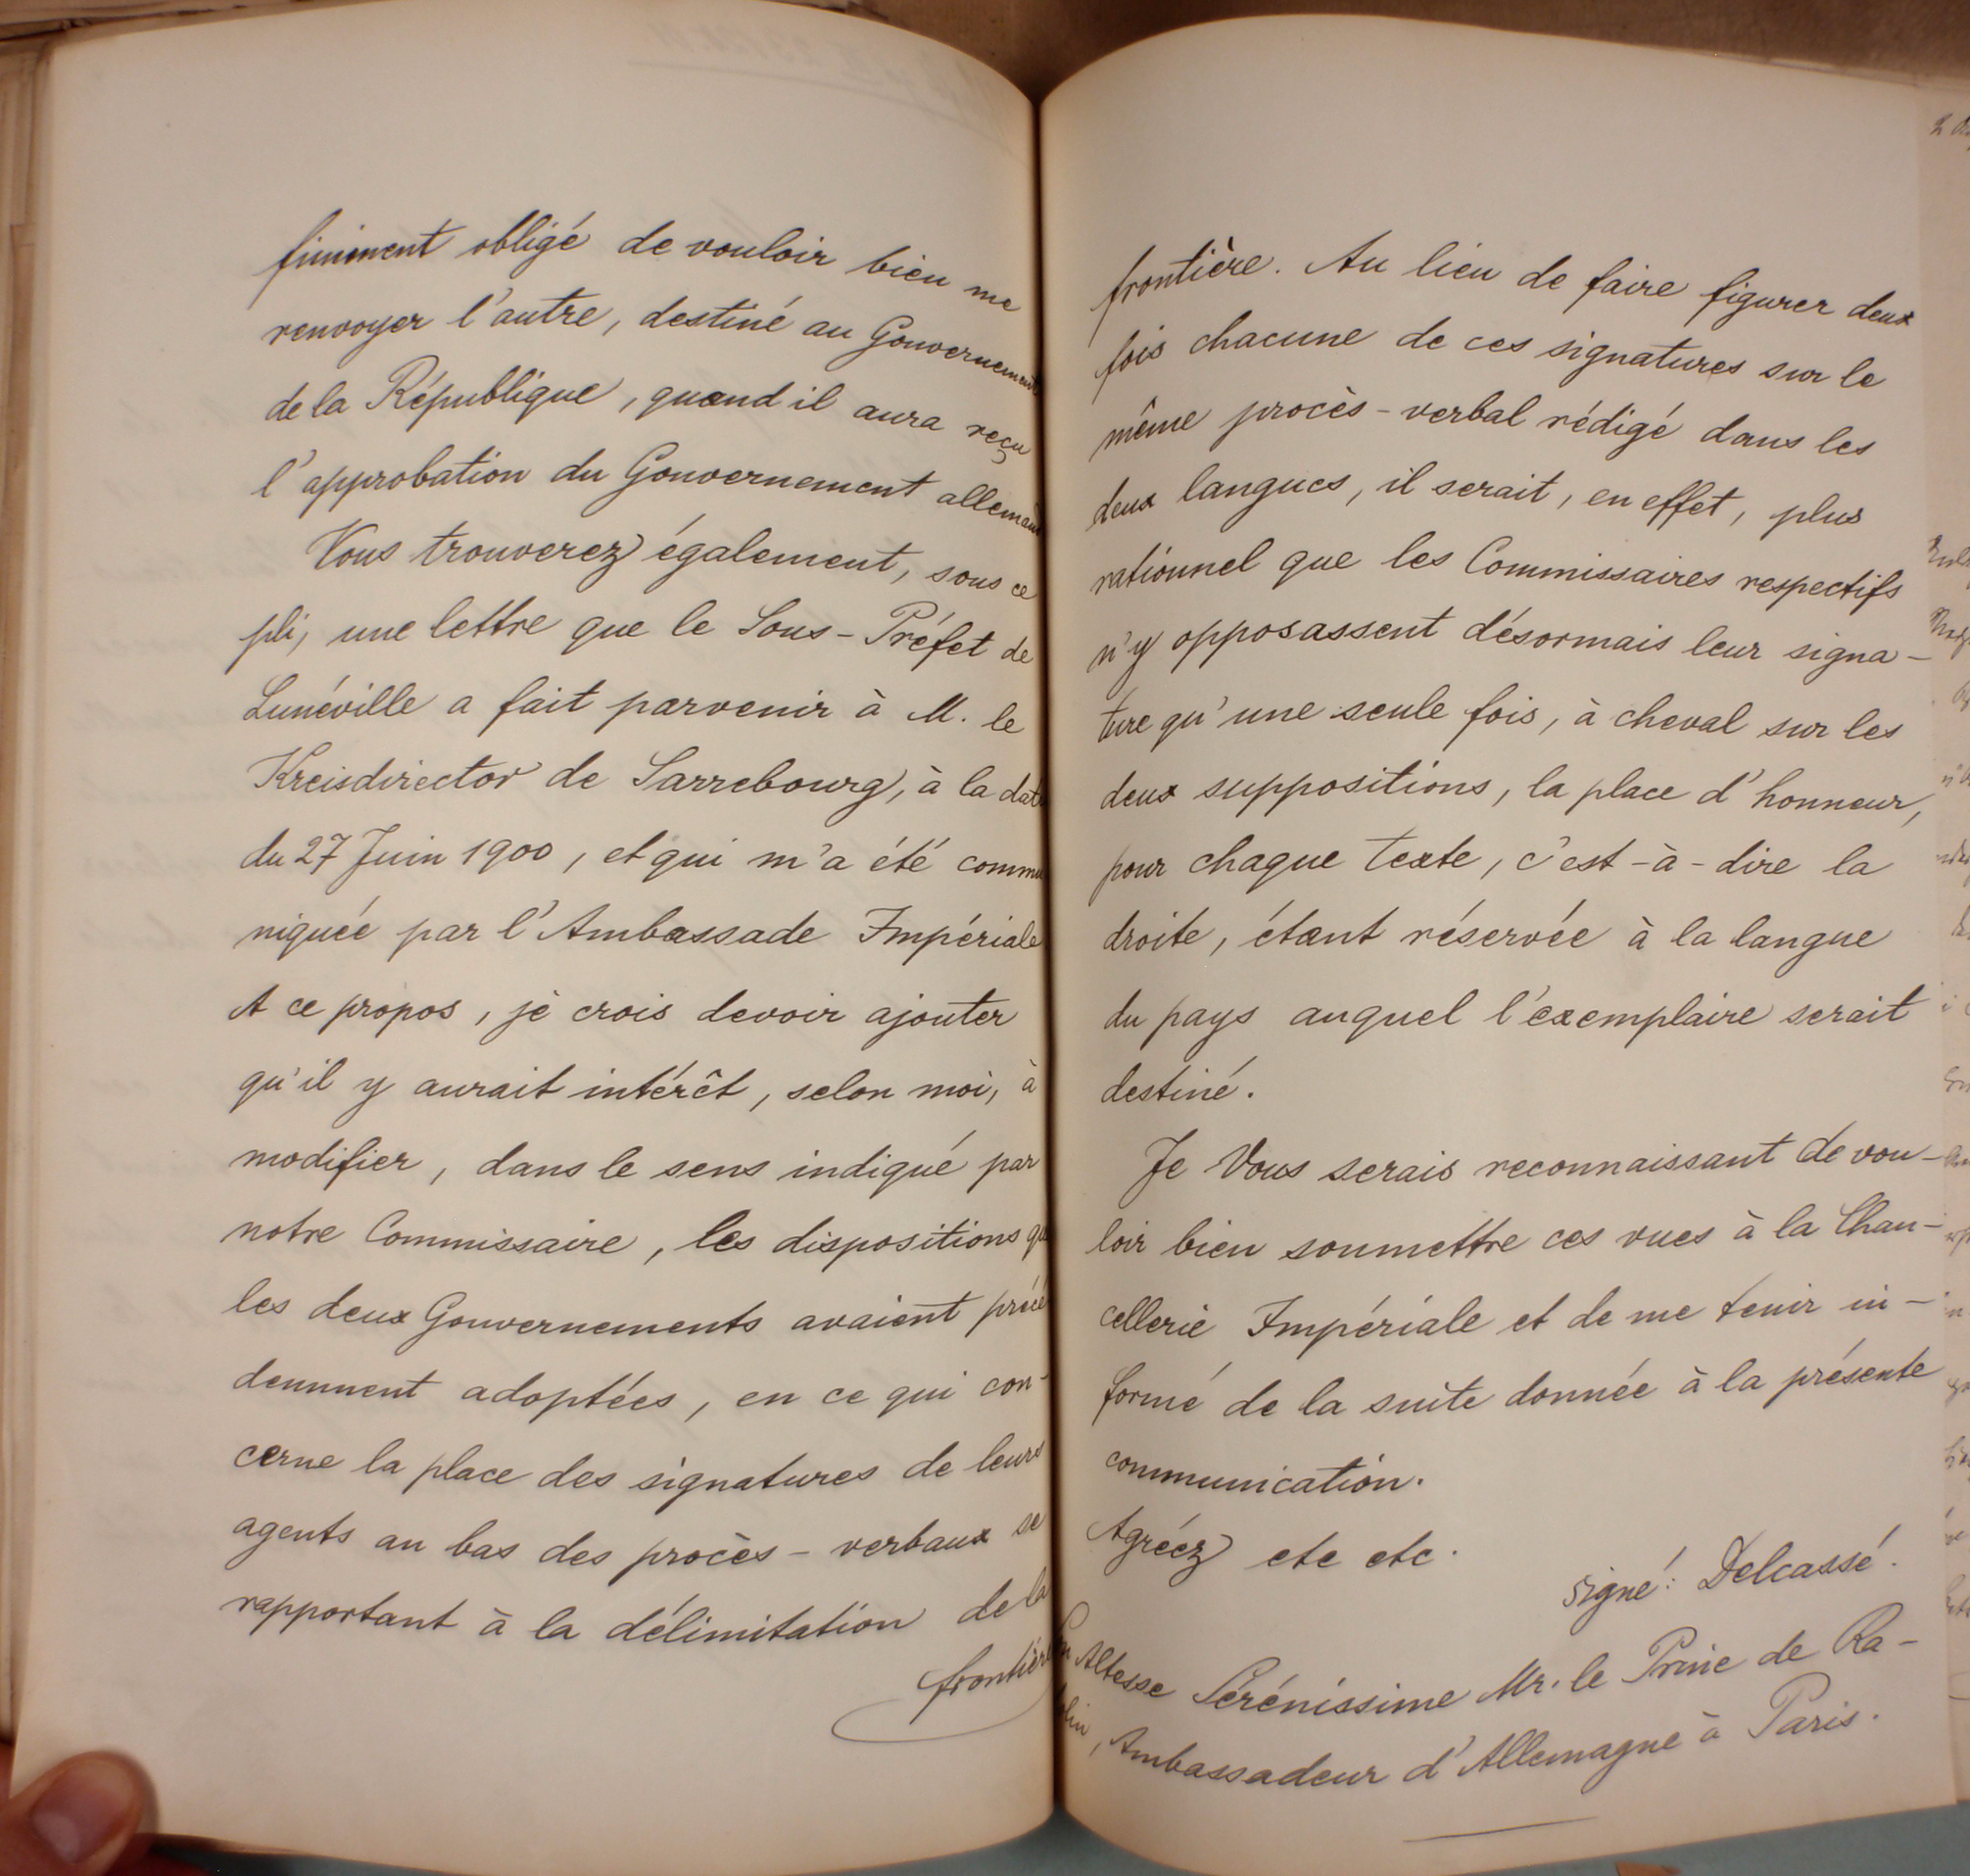 finiment obligé de vouloir bien me
renvoyer l'autre, destiné au Gouvernement
de la République, quand il aura reçu
l'approbation du Gouvernement allemand
Vous trouverez également, sous ce
pli, une lettre que le Sous-Préfet de
Lunéville a fait parvenir à M. le
Kreisdirector de Sarrebourg, à la date
du 27 Juin 1900, et qui m'a été commu
niquée par l'Ambassade Impériale
A ce propos, je crois devoir ajouter
qu'il y aurait intérêt, selon moi, à
modifier, dans le sens indiqué par
notre Commissaire, les dispositions que
les deux Gouvernements avaient précé
demment adoptées, en ce qui con-
cerne la place des signatures de leurs
agents au bas des procès-verbaux se
rapportant à la délimitation de la
frontière
frontière. Au lieu de faire figurer deux
fois chacune de ces signatures sur le
même procès-verbal rédigé dans les
deux langues, il serait, en effet, plus
rationnel que les Commissaires respectifs
n'y opposassent désormais leur signa-
ture qu'une seule fois, à cheval sur les
deux suppositions, la place d'honneur,
pour chaque texte, c'est-à-dire la
droite, étant réservée à la langue
du pays auquel l'exemplaire serait
destiné.
Je Vous serais reconnaissant de vou-
loir bien soumettre ces vues à la Chan-
cellerie Impériale et de me tenir in-
formé de la suite donnée à la présente
communication.
Agréez etc etc.
signé: Delcassé.
Son Altesse Sérénissime Mr. le Prince de Ra-
dolin, Ambassadeur d'Allemagne à Paris.